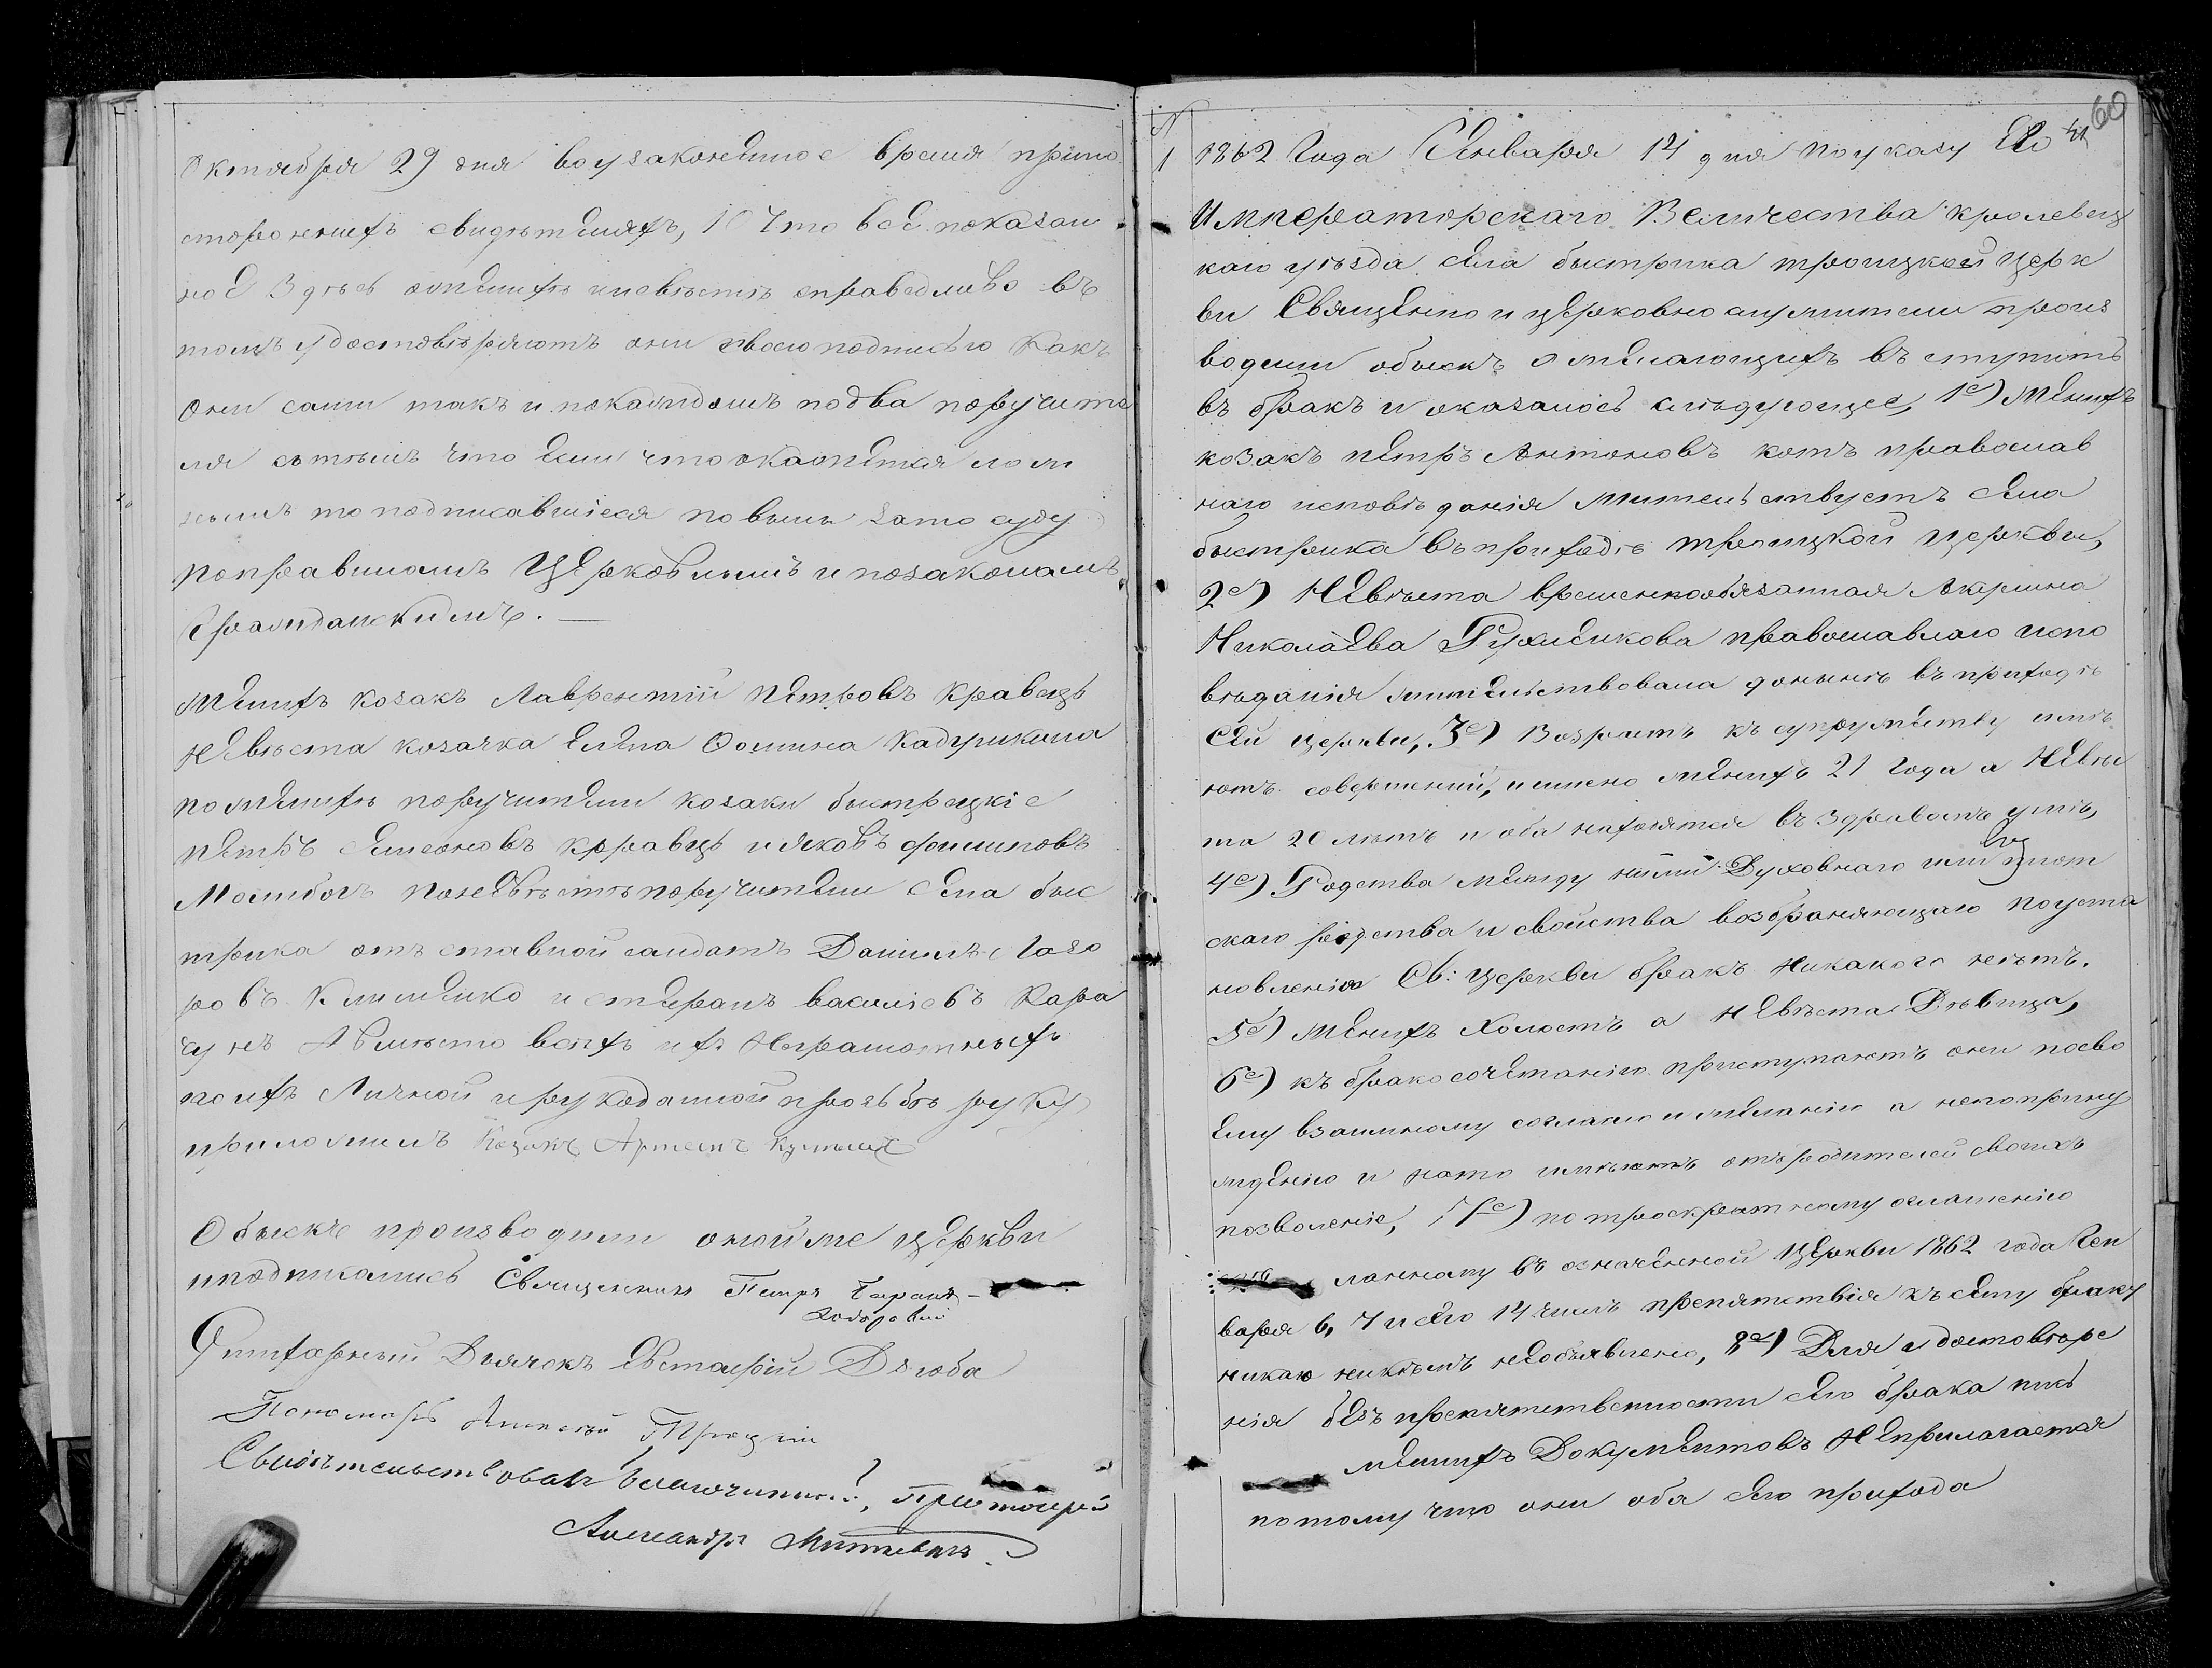 Октября 29 дня воузаконенное время припо
стороннихъ свидѣтеляхъ, 10 Что всё показан
ноё Здѣсь оженихѣ иневѣстѣ справедливо въ
томъ удостовѣряютъ они своею подписью Какъ
Они сами такъ и покаждомъ подва поручите
ля сътѣмъ что ели чтоокажется лож
нымъ топодписавшіеся повины зато суду
поправиламъ Церковнымъ и позаконамъ
Гражданскимъ. —
женихъ козакъ Лаврентій Петровъ Кравець
Невѣста козачка Елена Фомина
поженихѣ поручители Козаки быстрецкіе
Петръ Семеоновъ Кравець и яковъ филиповъ
поневѣстѣ поручители села быс
трика отъставной салдатъ Данилъ Лазо
ровъ Клименко и стефанъ василіевъ Кара
Авмѣсто всѣхъ ихъ Неграмотныхъ
поихъ Личной ирукоданной прозьбѣ руку
приложилъ Козакъ Артемъ
Обыскъ производили оноййже Церкви
иподписались Священникъ Петръ
Дьячокъ Евстафій Дзюба
Пономарь Алексей
Свидѣтельствовалъ благочинный, Протоіерей
Александръ
N 60
41
1 1862 Года Генваря 14 дня поуказу Его
Императорскаго Величества кролевец
каго уѣзда села быстрика троицкой Церк
ви Священно и церковнослужители произ
водили обыскъ ожелающихъ въступить
въ бракъ и оказалось слѣдующее, 1е) женихъ
козакъ петръ Антоновъ котъ православ
наго исповѣданія жительствуетъ села
быстрика въприходѣ троицкой церкви,
2е) Невѣста временнообязанная Акилина
Николаева православнаго испо
вѣданія жительствовала донынѣ въприходѣ
Сей церкви, 3е) Возрастъ къ супружеству имѣ
ютъ совершенный, иименно женихъ 21 Года а Невѣс
та 20 лѣтъ и оба находятся въздравомъ умѣ,
4е) Родства между ними Духовнаго или плот
скаго родства и свойства возбраняющаго поуста
новленію Св: церкви бракъ Никакого нѣтъ.
5е) женихъ Холостъ а невѣста Дѣвица,
6е) къ бракосочетанію приступаютъ они посво
ему взаимному согласію и желанію а непопринуж
денію и нато имѣютъ отъродителей своихъ
позволеніе, 7е) по троекратному оглашенію
ланному въ означенной Церкви 1862 года Ген
варя 6, 7 исего 14 числъ препятствія къ сему браку
никакого никѣмъ необъявлено, 8е) Для удостовѣре
нія безпрепятственности сего брака пись
менныхъ Документовъ Неприлагается
потому что они оба сего прихода